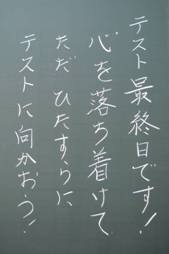 テスト最終日です!
心を落ち着けて
ただ ひたすらに
テストに向かおう!